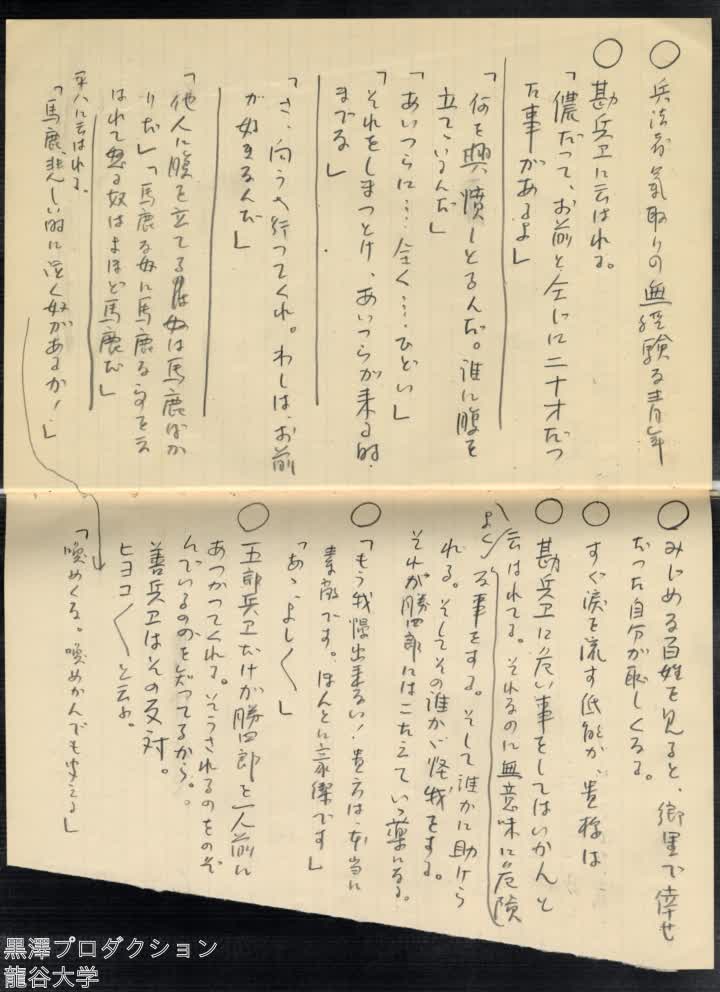 ○ 兵法者気取りの無経験な青年
○ 勘兵衛に云はれる。
「儂だって、お前と仝じに二十才だつ
た事があるよ」
「何を興憤しとるんだ。誰に腹を
立てゝいるんだ」
「あいつらに…仝く…ひどい」
「それをしまつとけ、あいつらが来る時
までな」
「さ、向うへ行つてくれ。わしは、お前
が好きなんだ」
「他人に腹を立てる奴は馬鹿ばか
りだ」「馬鹿な奴に馬鹿な事を云
はれて怒る奴はよほど馬鹿だ」
平八に云はれる。
「馬鹿、悲しい時に泣く奴があるか!」
○ みじめな百姓を見ると、郷里で倖せ
だった自分が恥しくなる。
○ すぐ涙を流す低能が、貴様は
○ 勘兵卫に危い事をしてはいかんと
云はれてる。それなのに無意味に危険
な事をする。そして誰かに助けら
よく
れる。そしてその誰かゞ怪我をする。
それが勝四郎にはこたえていつ薬になる。
○「もう我慢出来ない!貴方は、本当に
素敵です。ほんとに豪傑です」
「あゝ、よし〳〵」
○ 五郎兵卫だけが勝四郎を一人前に
あつかつてくれる。そうされるのをのぞ
んでいるのを知ってるから。
善兵卫はその反対。
ヒヨコ〳〵と云ふ。
「喚めくな。喚めかんでも聞える」
黒澤プロダクション
龍谷大学